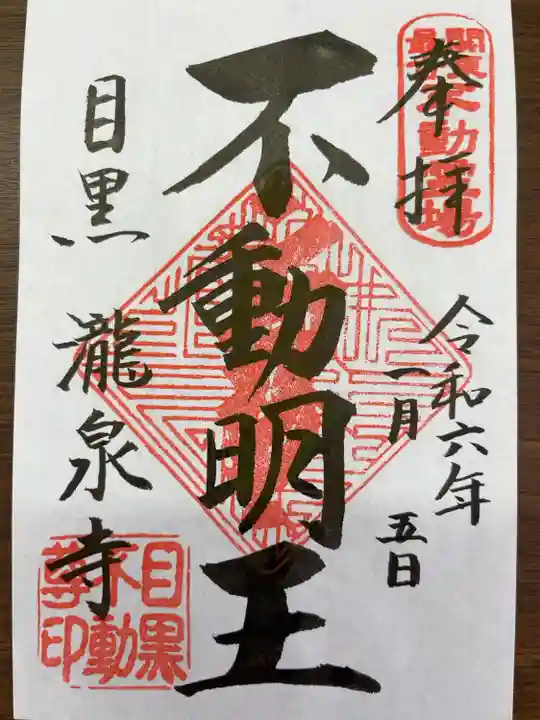 奉拝
関東最
不動霊場
令和六年
一月
五日
不動明王
目黒
瀧泉寺
目黒
不動
尊印